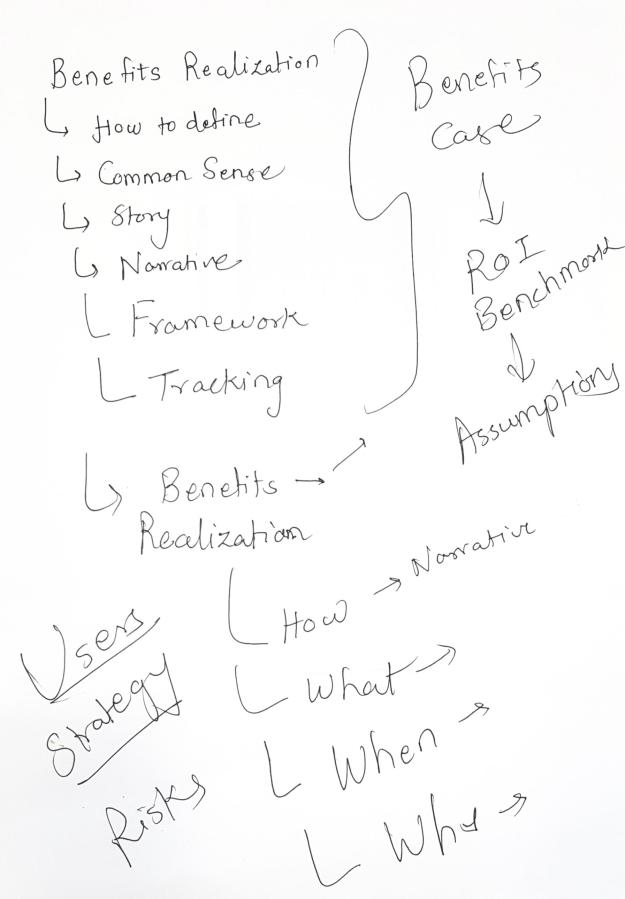 Benefits Realization
How to define
Common Sense
Story
Narrative
Framework
Tracking
Benefits
Realization
How → Narrative
What →
When →
Who →
Benefits
Case
RoI
Benchmark
Assumptions
Users
Strategy
Risks